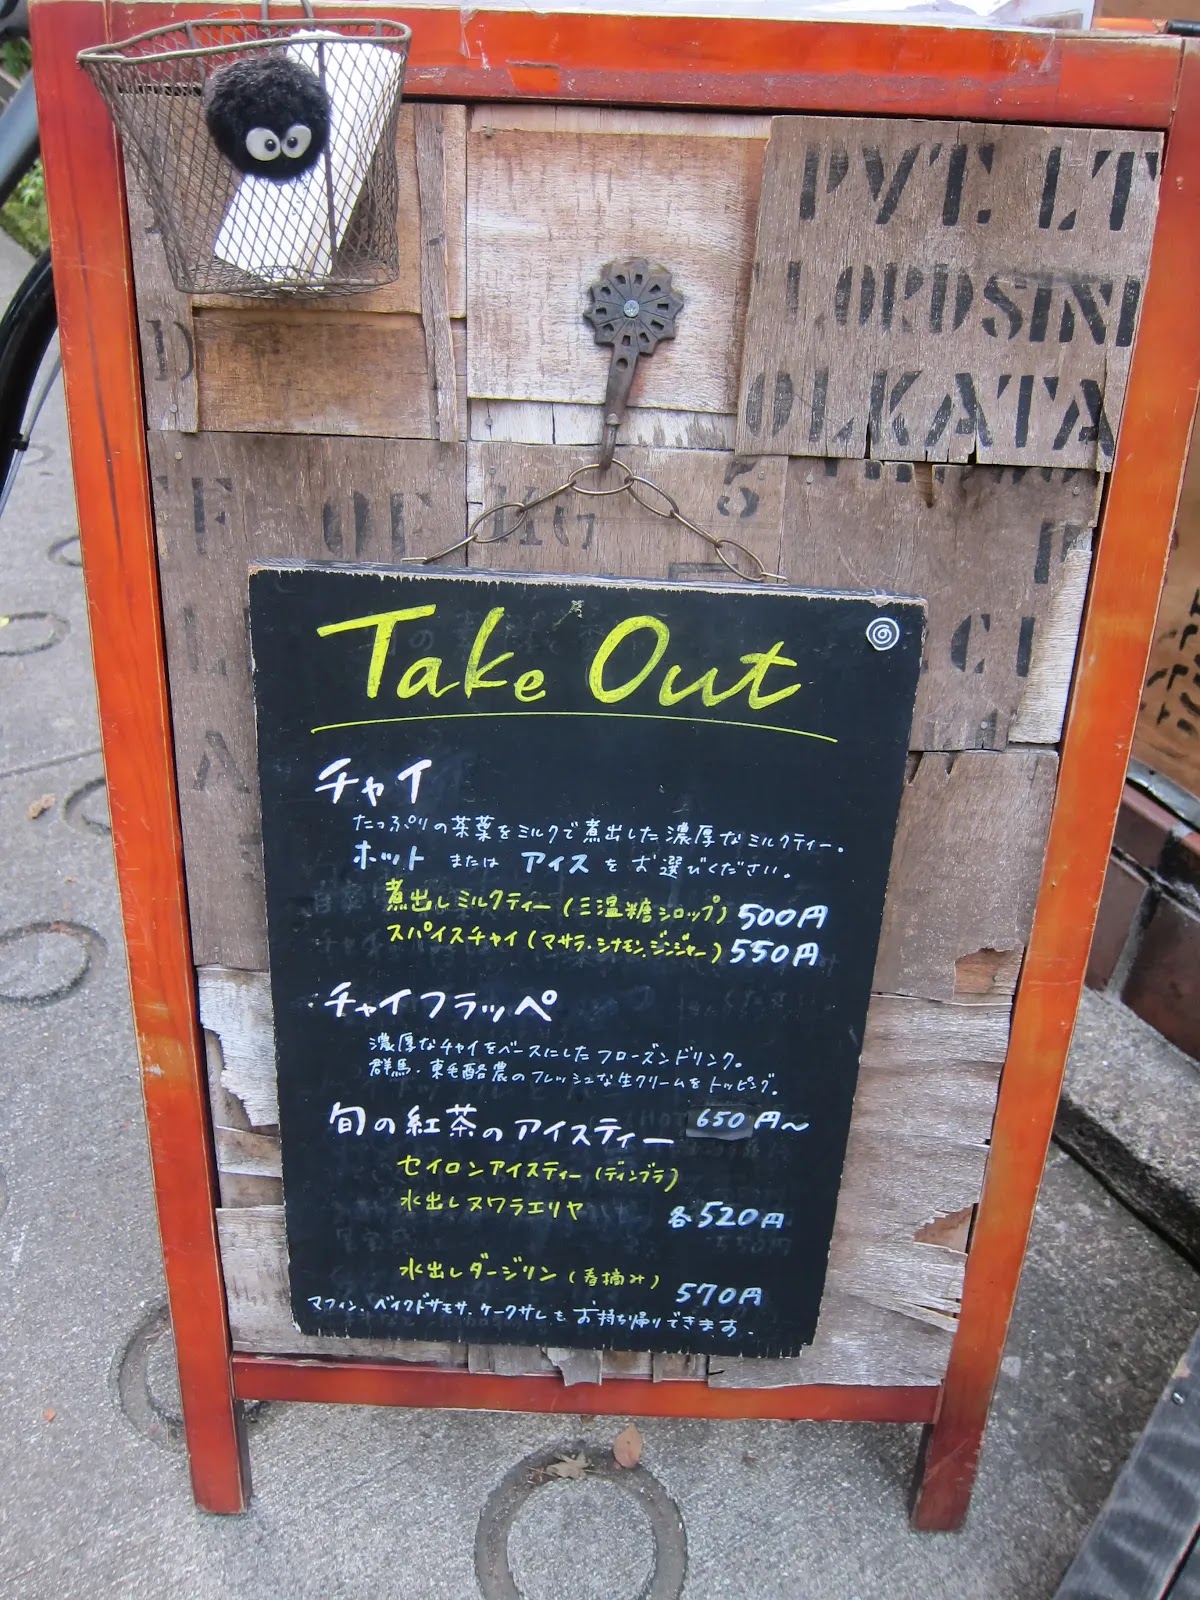 PVT. LT
LORDSIN
OLKATA
D
5
F OF KG
F
L
C T
A
Take Out
チャイ
たっぷりの茶葉をミルクで煮出した濃厚なミルクティー。
ホット または アイス をお選びください。
煮出しミルクティー(三温糖シロップ) 500円
スパイスチャイ(マサラ・シナモン・ジンジャー) 550円
・チャイフラッペ
濃厚なチャイをベースにしたフローズンドリンク。
群馬・東毛酪農のフレッシュな生クリームをトッピング。
650円〜
旬の紅茶のアイスティー
セイロンアイスティー(ディンブラ)
水出しヌワラエリヤ
各520円
水出しダージリン(春摘み)
570円
マフィン、ベイクドサモサ、ケークサレもお持ち帰りできます。